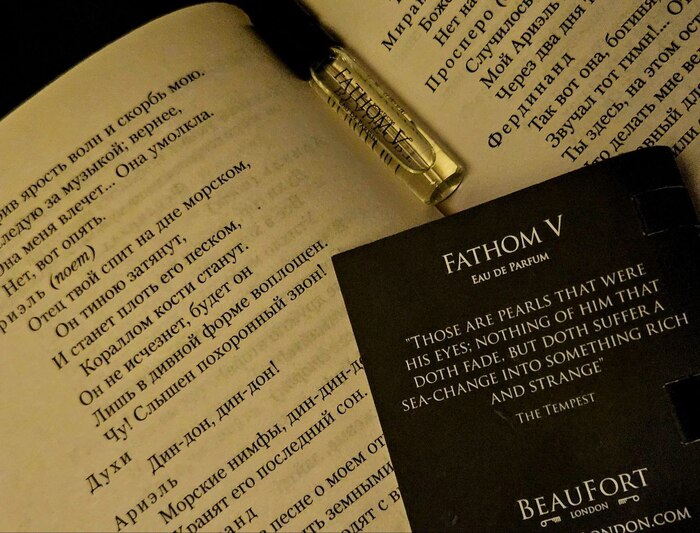 рив ярость волн и скорбь мою.
следую за музыкой; вернее,
Она меня влечет... Она умолкла.
Нет, вот опять.
риэль (поет)
Отец твой спит на дне морском,
Он тиною затянут,
И станет плоть его песком,
Кораллом кости станут.
Он не исчезнет, будет он
Лишь в дивной форме воплощен.
Чу! Слышен похоронный звон!
Духи
Дин-дон, дин-дон!
Морские нимфы, дин-дин-до
Ариэль
Хранят его последний сон.
анд
а песне о моем от
ть земными
одят с в
FATHOM V
Миран
Боже
Нет на
Просперо (
Случилось
Мой Ариэль
Через два дня
Фердинанд
Так вот она, богиня
Звучал тот гимн!... О
Ты здесь, на этом ост
то делать мне ве
FATHOM V
EAU DE PARFUM
"THOSE ARE PEARLS THAT WERE
HIS EYES; NOTHING OF HIM THAT
DOTH FADE, BUT DOTH SUFFER A
SEA-CHANGE INTO SOMETHING RICH
AND STRANGE"
THE TEMPEST
BEAUFORT
LONDON
LONDON.COM